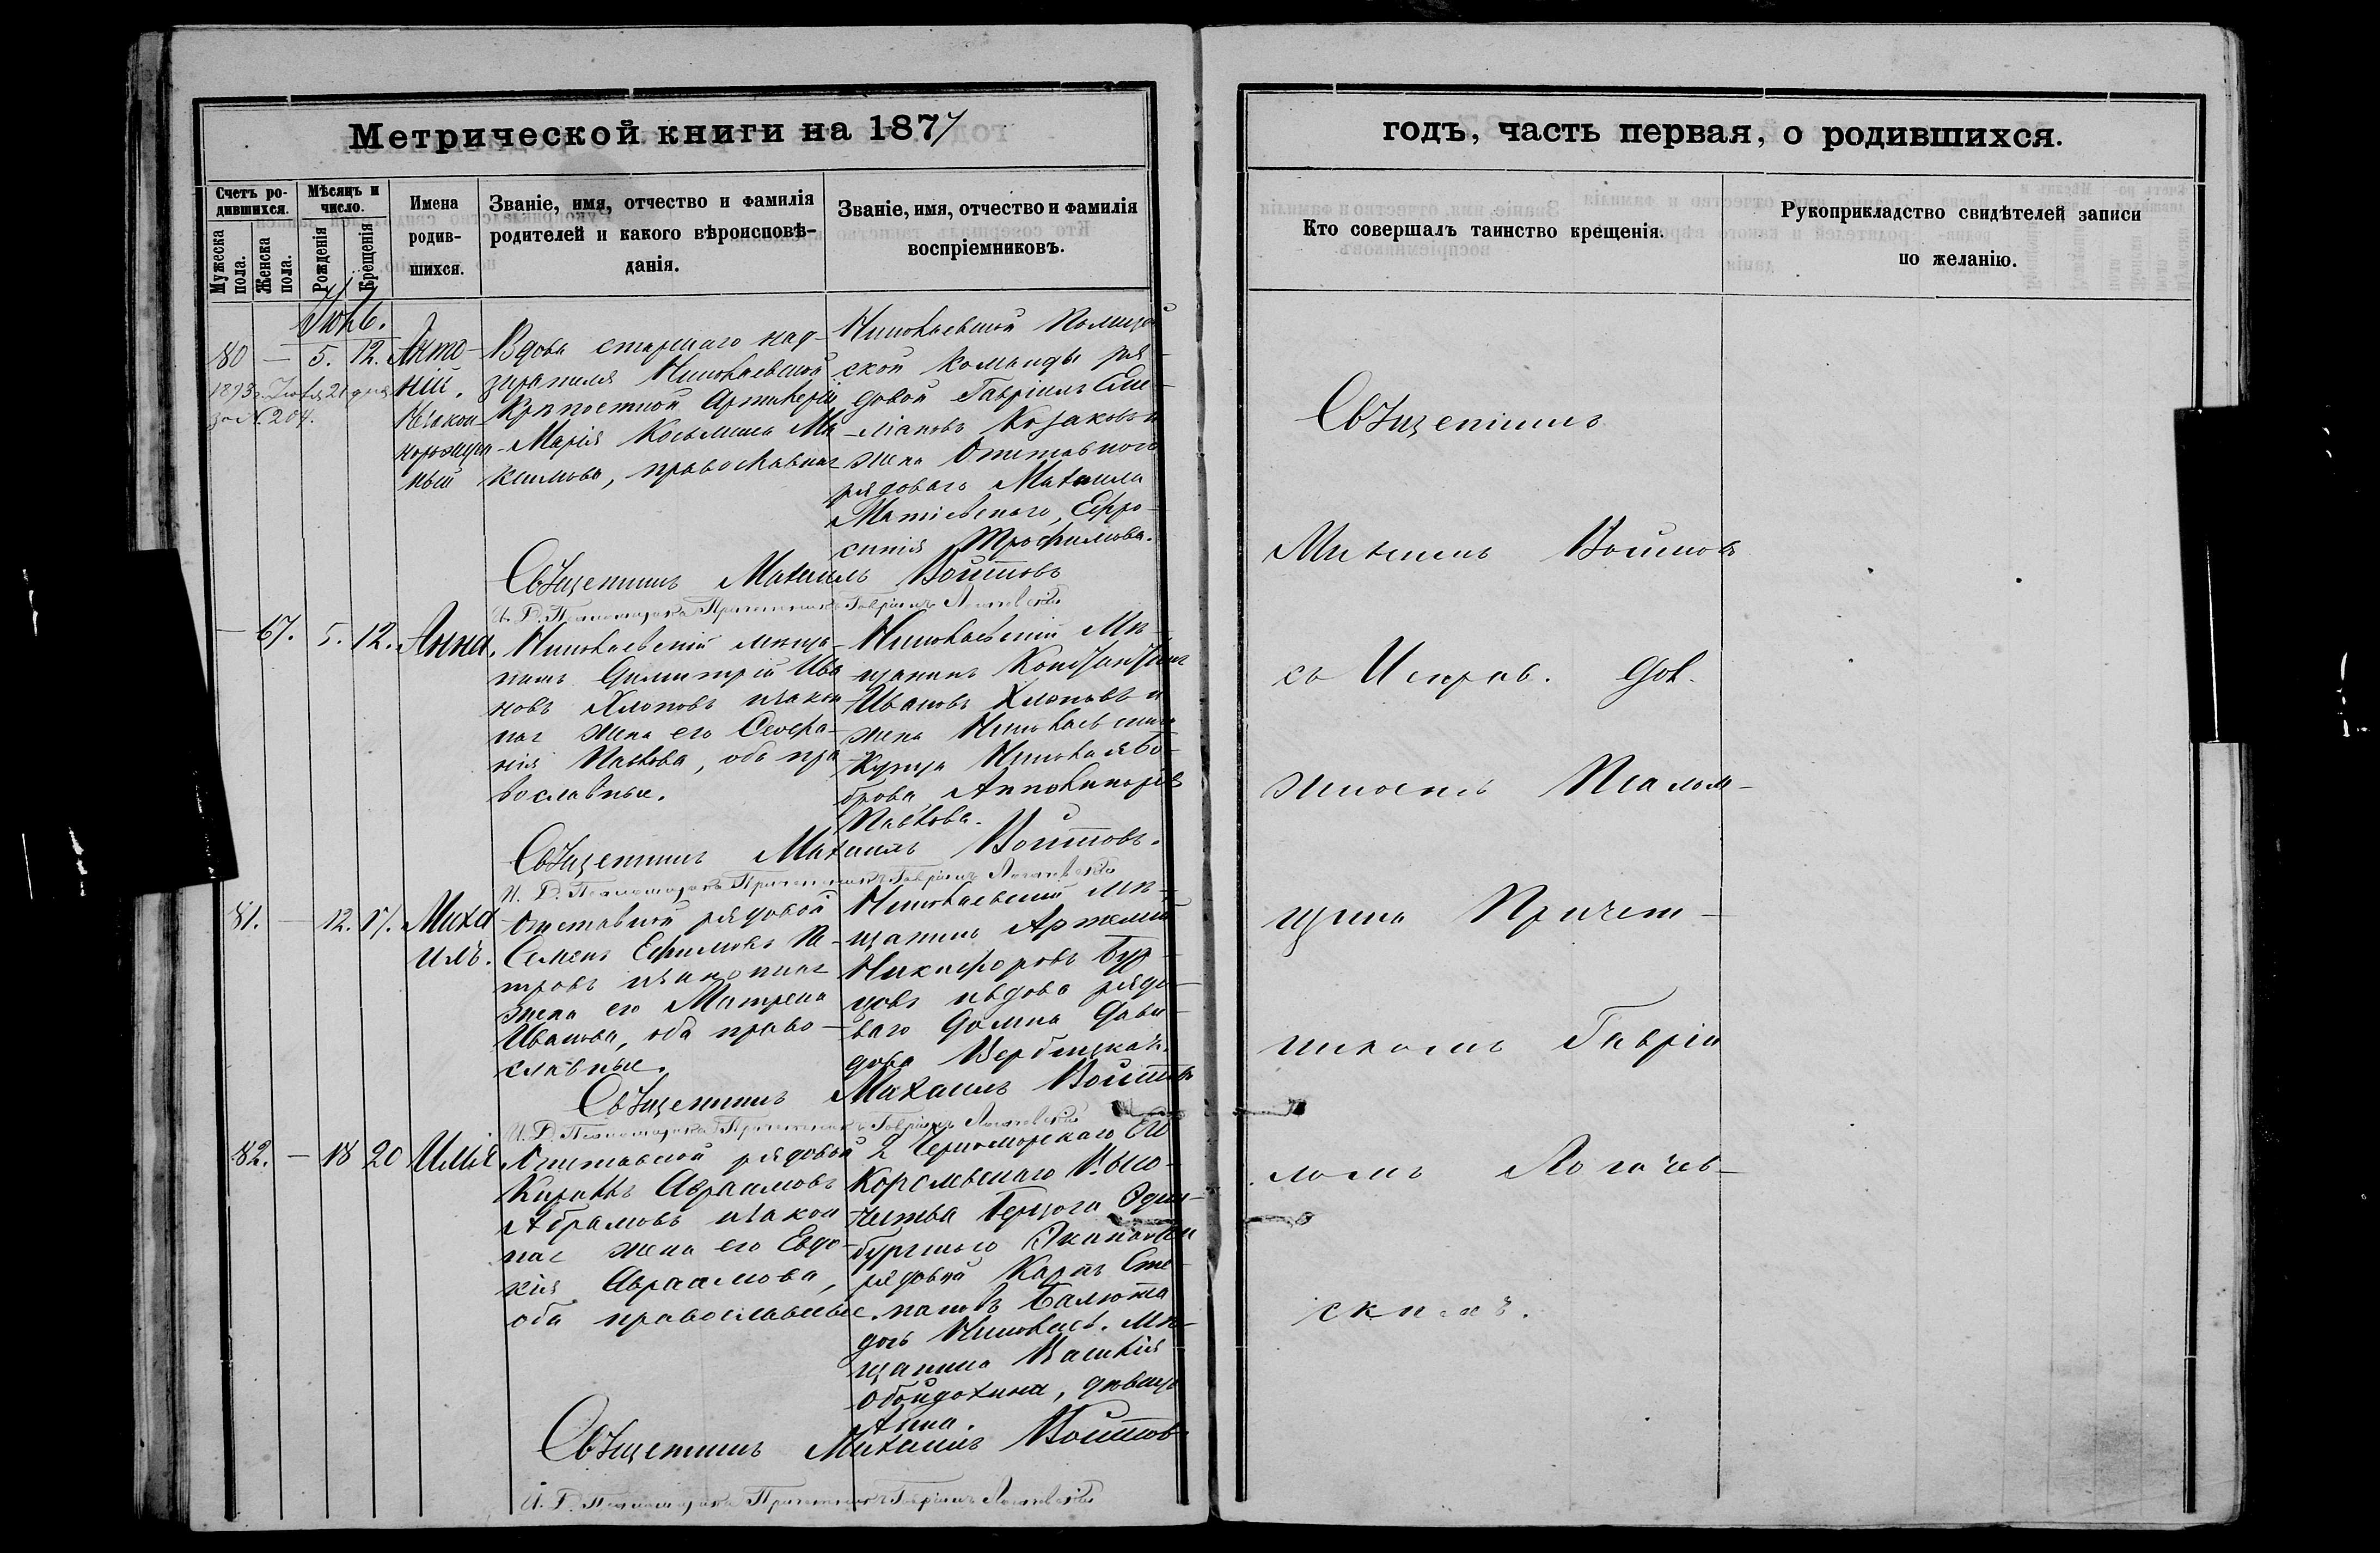 Метрической книги на 1877
годъ, часть первая, о родившихся.
Счетъ ро-
дившихся.
Мужеска
пола.
Женска
пола.
Мѣсяцъ и
число.
Рожденія
Крещенія
Имена
родив-
шихся.
Званіе, имя, отчество и фамилія
родителей и какого вѣроисповѣ-
данія.
Званіе, имя, отчество и фамилія
воспріемниковъ.
Кто совершалъ таинство крещенія.
Рукоприкладство свидѣтелей записи
по желанію.
80 — 5. 12. Анто-
ній.
Незакон
норожден
ный
Вдова старшаго над-
зирателя Николаевской
Крѣпостной Артилеріи
Марія Косьмина Ма
ксимова, православная
Николаевской Полицей
ской команды ря-
довой Гавріилъ Еме-
ліановъ Козаковъ и
жена Отставного
рядоваго Михаила
Матіевскаго, Ефро-
синія Трофимова.
Священникъ Михаилъ Войтовъ
И. Д. Псаломщика Причетникъ Гавріилъ Логачевскій
— 67. 5. 12. Анна.
Николаевскій мѣща-
нинъ Димитрій Ива
новъ Хлоповъ и закон
ная жена его Стефа-
нія Павлова, оба пра
вославные.
Николаевскій Мѣ-
щанинъ Константинъ
Ивановъ Хлоповъ и
жена Николаевскаго
Купца Николая Бо-
брова Апполинарія
Павлова.
Священникъ Михаилъ Войтовъ.
И. Д. Псаломщика Причетникъ Гавріилъ Логачевскій
81. — 12. 17. Миха
илъ.
Отставной рядовой
Семенъ Ефимовъ Пе-
тровъ и законная
жена его Матрена
Иванова, оба право-
славные.
Николаевскій Мѣ-
щанинъ Артемій
Никифоровъ Бур-
цовъ и вдова рядо-
ваго Домна Дави-
дова Вербицкая.
Священникъ Михаилъ Войтовъ
И. Д. Псаломщика Причетникъ Гавріилъ Логачевскій
82. — 18 20 Илія.
Отставной рядовой
Кириллъ Авраамовъ
Абрамовъ и закон
ная жена его Евдо-
кія Авраамова,
оба православные.
2 Черноморскаго Его
Королевскаго Высо-
чества Герцога Эдин-
бургскаго Экипажа
рядовой Карпъ Сте-
пановъ Балюта
дочь Николаев. Мѣ-
щанина Василія
Обойдохина, дѣвица
Анна.
Священникъ Михаилъ Войтовъ
И. Д. Псаломщика Причетникъ Гавріилъ Логачевскій
Священникъ
Михаилъ Войтовъ
съ Исправ. Дол.
жность Псалом-
щика Причет-
никомъ Гаврі
ломъ Логачев-
скимъ.